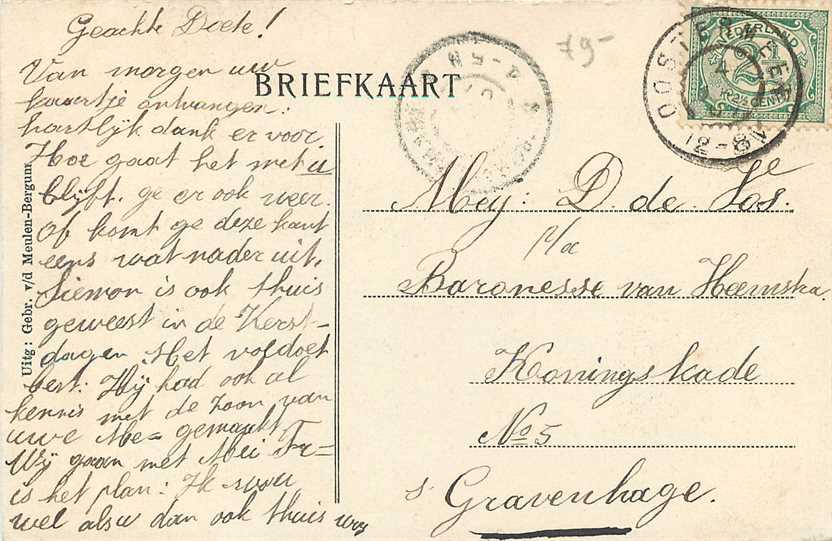 Geachte Doete!
Van morgen uw
kaartje ontvangen:
hartlijk dank er voor
Hoe gaat het met u
blijft. ge er ook weer.
Of komt ge deze kant
eens wat nader uit.
Siemon is ook thuis
geweest in de Kerst-
dagen. Het voldoet
best. Hij had ook al
kennis met de zoon van
uwe Me= gemaakt
Wij gaan met Mei
is het plan: Ik
wel alsw dan ook thuis
BRIEFKAART
79-
NEDERLAND
2½ CENT
OOSTERMEER
4
12-8V
4-5N
Mej: D. de Vos.
p/a
Baronesse van Heemstra.
Koningskade
No 5
s' Gravenhage.
Uitg: Gebr. v/d Meulen-Bergum